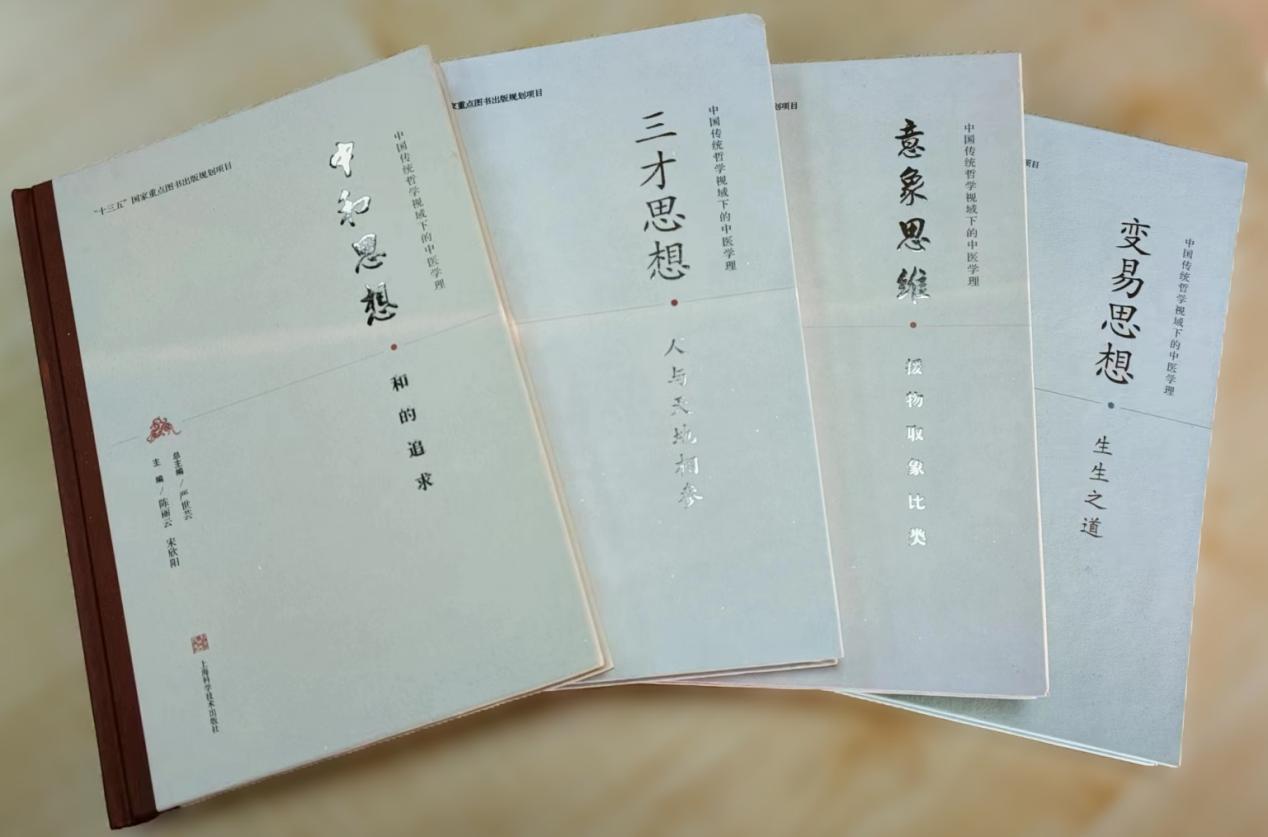 "十三五"国家重点图书出版规划项目
中国传统哲学视域下的中医学理
中和思想
和的追求
总主编/严世芸
主编/陈丽云 宋欣阳
上海科学技术出版社
家重点图书出版规划项目
中国传统哲学视域下的中医学理
三才思想
人与天地相参
划项目
中国传统哲学视域下的中医学理
意象思维
援物取象比类
项目
中国传统哲学视域下的中医学理
变易思想
生生之道